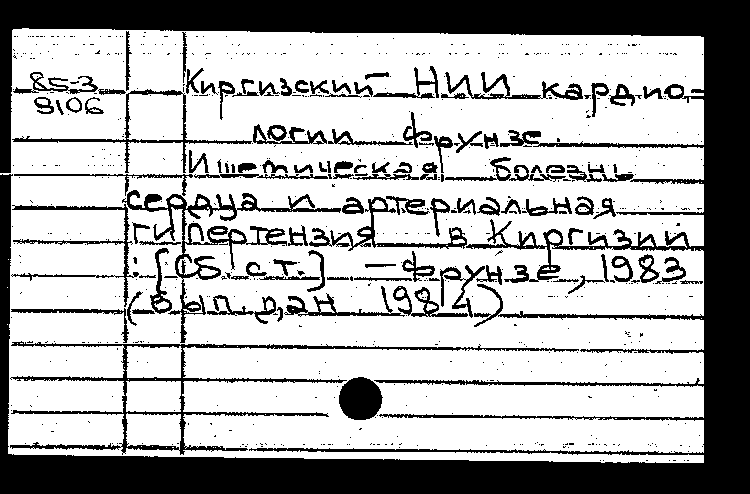 85-3
9106
Киргизский НИИ кардио-
логии Фрунзе.
Ишемическая болезнь
сердца и артериальная
гипертензия в Киргизии
: [Сб. ст.] — Фрунзе, 1983
(вып. дан. 1984)